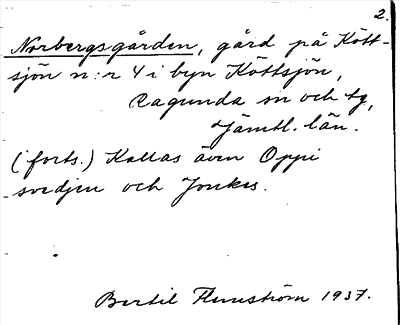 2.
Norbergsgården, gård på Kött-
sjön n:r 4 i byn Köttsjön,
Ragunda sn och tg,
Jämtl. län.
(forts.) Kallas även Oppi
svedjen och Jonkes.
Bertil Flemström 1937.